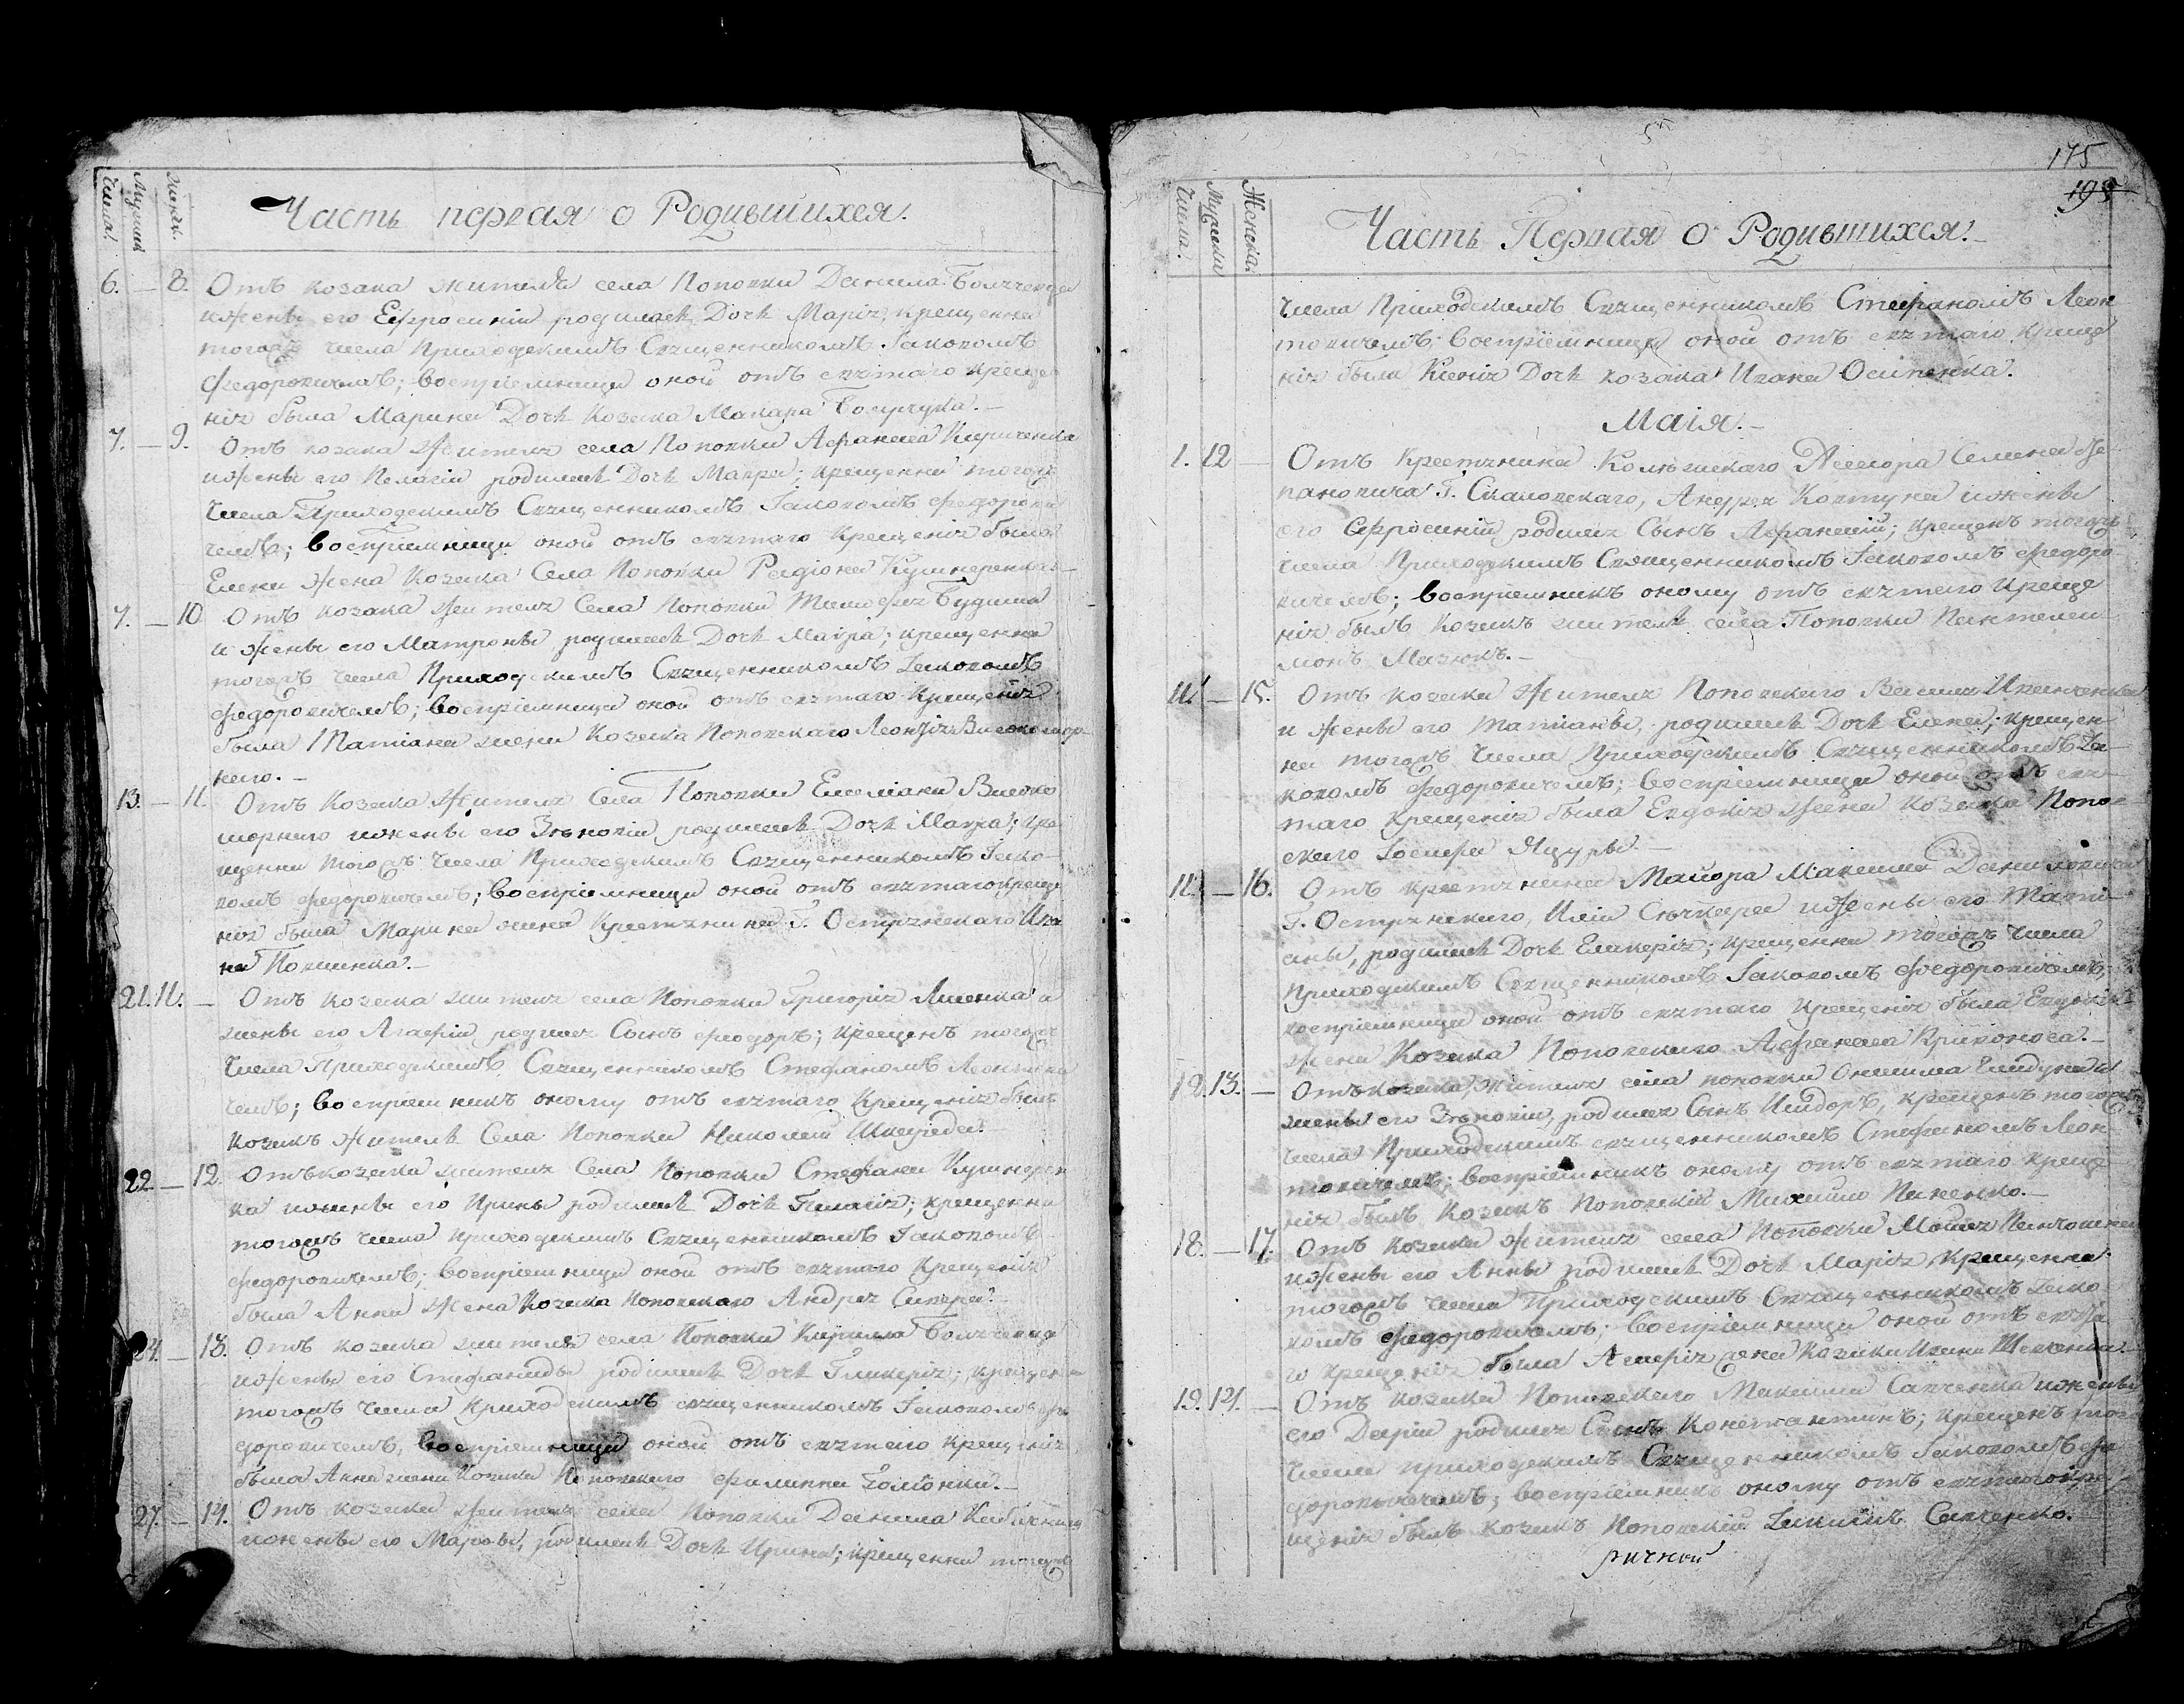 Числа.
Мужеска
Женска.
Часть первая о Родившихся.
6. — 8. Отъ козака жителя села Поповки Данила
и жены его Ефросиніи родилась Дочь Марія, крещенна
тогожъ числа Приходскимъ Священникомъ Іаковомъ
Федоровичемъ; воспріемница оной отъ святаго креще
нія была Марина Дочь Козака Макара
7. — 9. Отъ козака жителя села Поповки Афанасія Кириченка
и жены его Пелагіи родилась Дочь Мавра; крещенна тогожъ
числа Приходскимъ Священникомъ Іаковомъ Федорови
чемъ; воспріемница оной отъ святаго крещенія была
Елена жена Козака Села Поповки Радіона Кушнеренка
7. — 10 Отъ козака жителя Села Поповки Тимофея
и жены его Матроны родилась Дочь Мавра; крещенна
тогожъ числа Приходскимъ Священникомъ Іаковомъ
Федоровичемъ; воспріемница оной отъ святаго крещенія
была Татіана жена Козака Поповскаго Леонтія Високомор
наго. —
13. — 11. Отъ Козака жителя Села Поповки Емеліана Високо
морнаго и жены его Зѣновіи родилась Дочь Мавра; кре
щенна тогожъ числа Приходскимъ Священникомъ Іако
вомъ Федоровичемъ; воспріемница оной отъ святаго креще
нія была Марина жена Крестянина Г. Острянскаго Ива
на
21. 11. — Отъ козака жителя села Поповки Григорія и
жены его Агафіи родился Сынъ Феодоръ; крещенъ тогожъ
числа Приходскимъ Священникомъ Стефаномъ Леонтови
чемъ; воспріемникъ оному отъ святаго Крещенія былъ
козакъ житель Села Поповки Николай
22 — 12. Отъ козака жителя Села Поповки Стефана Кушнерен
ка и жены его Ирины родилась Дочь Пелагія; крещенна
тогожъ числа Приходскимъ Священникомъ Іаковомъ
Федоровичемъ; воспріемница оной отъ святаго Крещенія
была Анна жена Козака Поповскаго Андрея
24. — 13. Отъ козака жителя села Поповки Кирила
и жены его Стефаниды родилась Дочь Гликерія; крещенна
тогожъ числа Приходскимъ священникомъ Іаковомъ Фе
доровичемъ, воспріемница оной отъ святаго крещенія
была Анна жена Козака Поповскаго Филиппа
27. — 14. Отъ козака жителя села Поповки Данила
и жены его Марфы, родилась Дочь Ирина; крещенна тогожъ
5й
175
195
Числа.
Мужеска
Женска.
Часть Первая О Родившихся. —
числа Приходскимъ Священникомъ Стефаномъ Леон
товичемъ; воспріемница оной отъ святаго креще
нія была Ксенія Дочь козака Ивана Осипенка.
Маія. —
1. 12 — Отъ Крестянина Колежскаго Ассесора Семена Сте
пановича Г. Скаловскаго, Андрея Ковтуна и жены
его Ефросиніи родился Сынъ Афанасій; крещенъ тогожъ
числа Приходскимъ Священникомъ Іаковомъ Федоро
вичемъ; воспріемникъ оному отъ святаго креще
нія былъ Козакъ житель села Поповки Пантелеи
монъ Мазюкъ. —
11. — 15. Отъ козака жителя Поповскаго Василя Иванченка
и жены его Татіаны, родилась Дочь Елена; крещен
на тогожъ числа Приходскимъ Священникомъ Іа
ковомъ Федоровичемъ; воспріемница оной отъ свя
таго крещенія была Евдокія жена Козака Попов
скаго Іосифа Яцуры —
11. — 16. Отъ крестянина Маіора Максима Даниловича
Г. Острянскаго, Иліи и жены его Таті
аны, родилась Дочь Гликерія; крещенна тогожъ числа
Приходскимъ Священникомъ Іаковомъ Федоровичемъ;
воспріемница оной отъ святаго крещенія была Евдокія
жена Козака Поповскаго Афанасія Кривоноса. —
12. 13. — Отъ козака, жителя села Поповки Онисима и
жены его Зѣновіи, родился Сынъ Исидоръ, крещенъ тогожъ
числа Приходскимъ священникомъ Стефаномъ Леон
товичемъ; воспріемникъ оному отъ святаго креще
нія былъ Козакъ Поповскій Михайло —
18. — 17. Отъ Козака жителя села Поповки Мойсея
и жены его Анны родилась Дочь Марія, крещенна
тогожъ числа Приходскимъ Священникомъ Іако
вомъ Федоровичемъ; воспріемница оной отъ свята
го крещенія была Агафія жена Козака Ивана —
19. 14. — Отъ козака Поповскаго Максима Савченка и жены
его Даріи родился Сынъ Константинъ; крещенъ того
числа приходскимъ Священникомъ Іаковомъ Фе
доровичемъ; воспріемникъ оному отъ святаго кре
щенія былъ козакъ Поповскій Савченко.